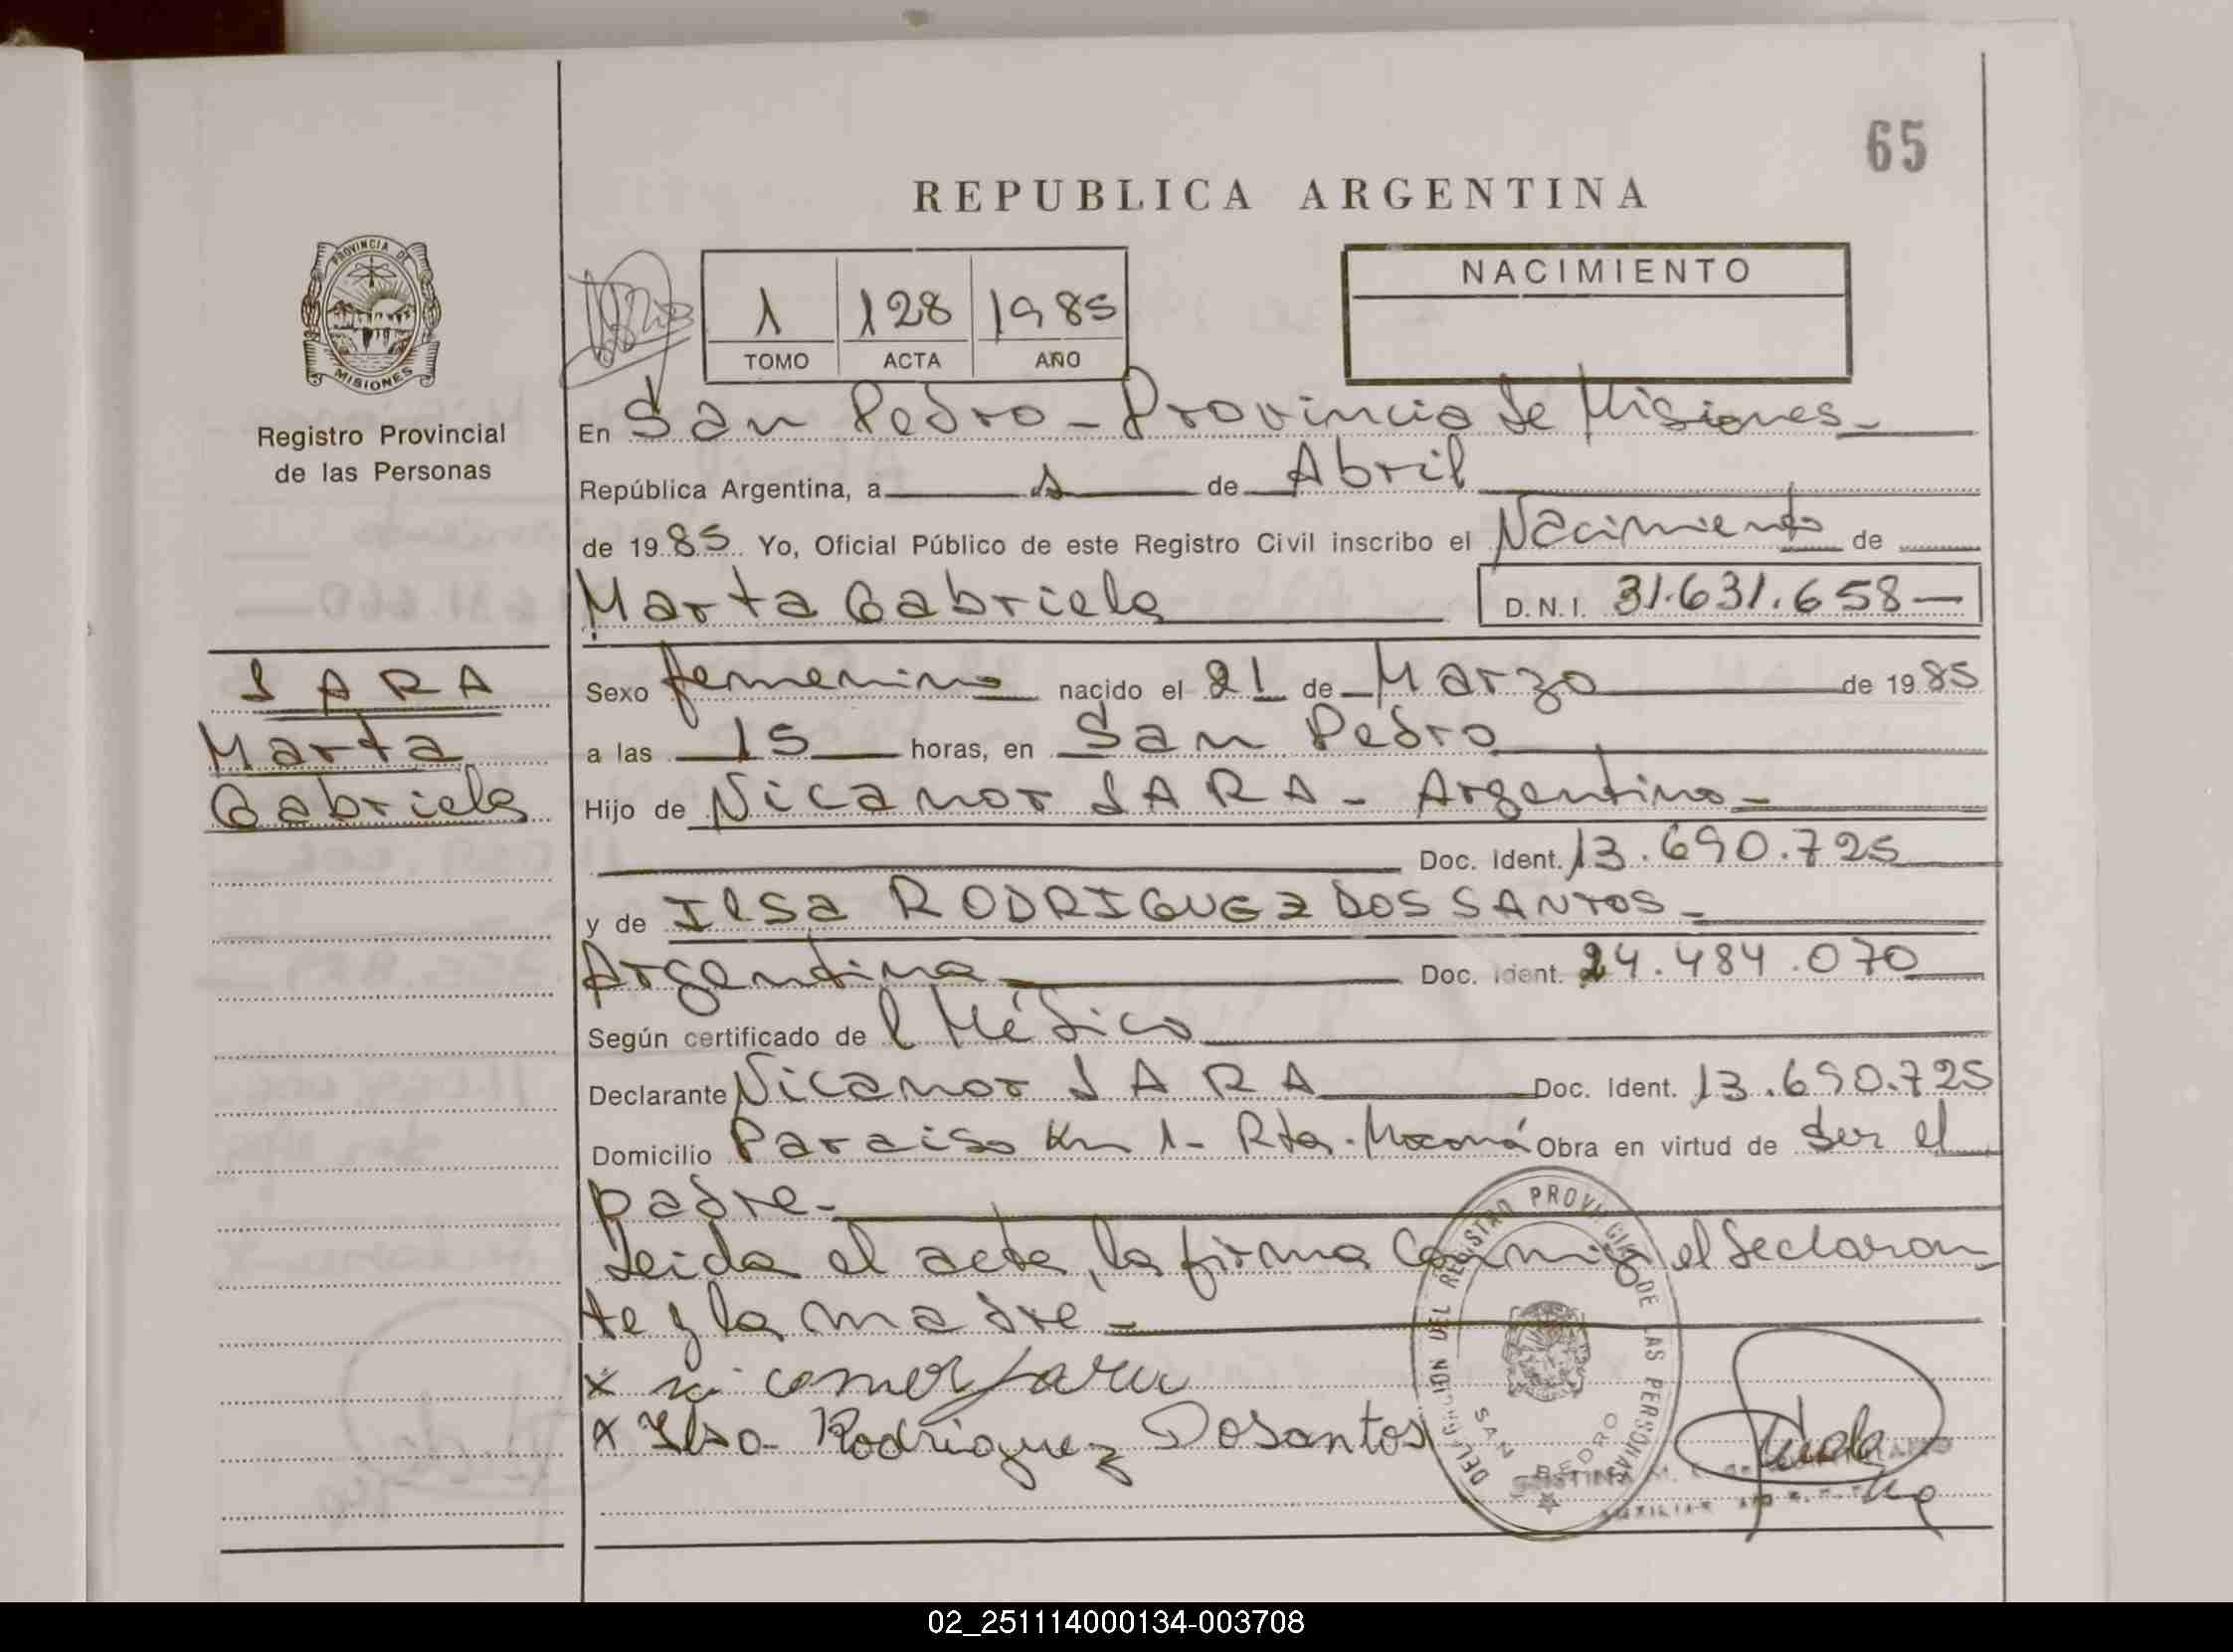 65
REPUBLICA ARGENTINA
PROVINCIA DE
MISIONES
Registro Provincial
de las Personas
1 128 1985
TOMO ACTA AÑO
NACIMIENTO
En San Pedro - Provincia de Misiones -
República Argentina, a 1 de Abril
de 1985 Yo, Oficial Público de este Registro Civil inscribo el Nacimiento de
Marta Gabriela D.N.I. 31.631.658 —
SARA
Marta
Gabriela
Sexo femenino nacido el 21 de Marzo de 1985
a las 15 horas, en San Pedro
Hijo de Nicanor SARA - Argentino -
Doc. Ident. 13.690.725
y de Ilsa RODRIGUEZ DOS SANTOS -
Argentina Doc. Ident. 24.484.070
Según certificado de l Médico
Declarante Nicanor SARA Doc. Ident. 13.690.725
Domicilio Paraiso Km 1 - Rta. Moconá Obra en virtud de ser el
padre -
Leida el acta, la firma conmigo el declaran
te y la madre -
x ni comer sara
x Ilsa Rodriguez Dosantos
DELEGACION DEL REGISTRO PROVINCIAL DE LAS PERSONAS
SAN PEDRO
02_251114000134-003708